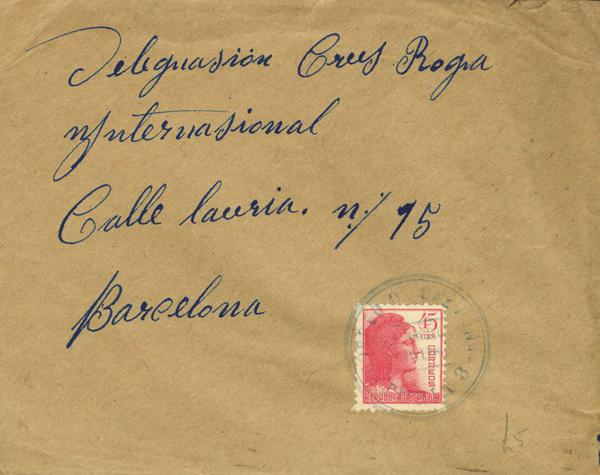 Deleguasión Crus Roga
Internasional
Calle lauria. n./ 95
Barcelona
45
CTMS
CORREOS
REPUBLICA ESPAÑOLA
65